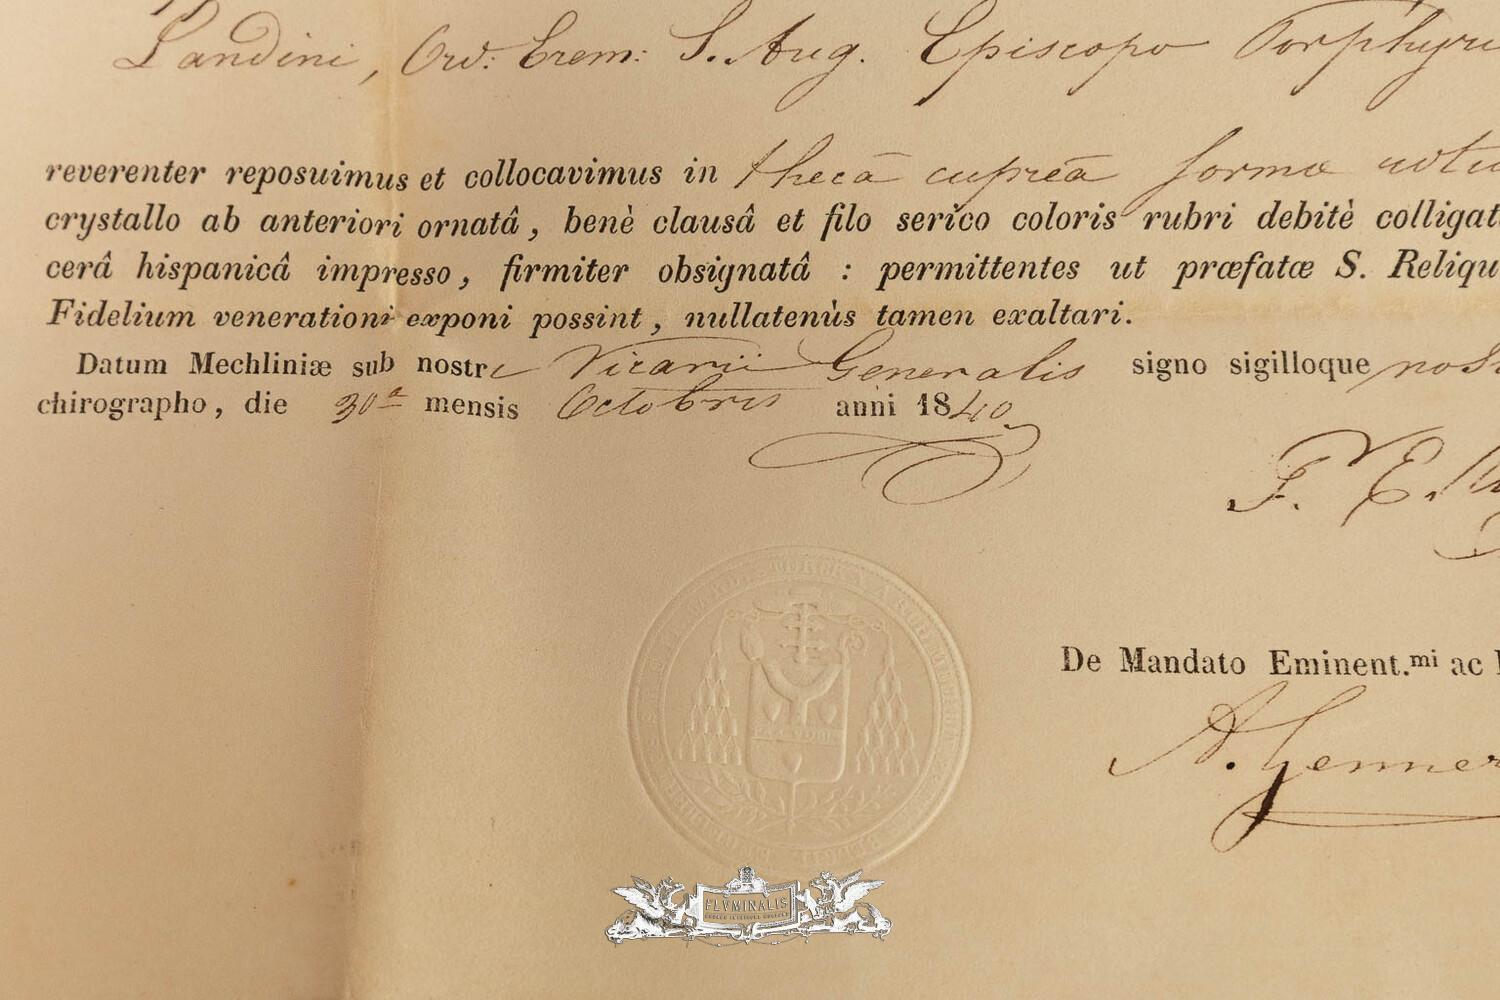 Landini, Ord: Erem: S. Aug. Episcopo
reverenter reposuimus et collocavimus in thecâ cupreâ forma
crystallo ab anteriori ornatâ, benè clausâ et filo serico coloris rubri debitè
cerâ hispanicâ impresso, firmiter obsignatâ : permittentes ut præfatæ S.
Fidelium venerationi exponi possint, nullatenùs tamen exaltari.
Datum Mechliniæ sub nostri Vicarii Generalis signo sigilloque
chirographo, die 30ª mensis Octobris anni 1840
F. E.
De Mandato Eminent.mi ac
A.
FLVMINALIS